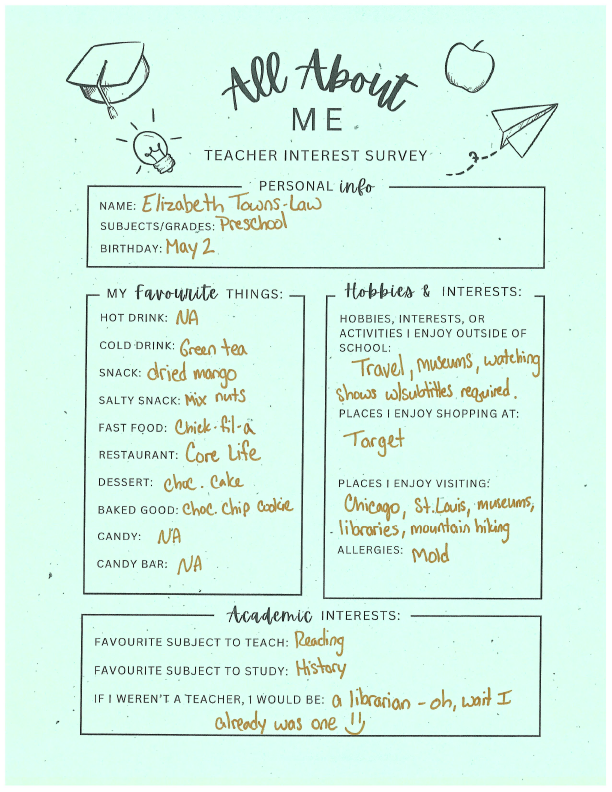 All About
ME
TEACHER INTEREST SURVEY
PERSONAL info
NAME: Elizabeth Towns-Law
SUBJECTS/GRADES: Preschool
BIRTHDAY: May 2
MY Favourite THINGS:
HOT DRINK: NA
COLD DRINK: Green tea
SNACK: dried mango
SALTY SNACK: Mix nuts
FAST FOOD: Chick-fil-a
RESTAURANT: Core Life
DESSERT: choc. cake
BAKED GOOD: choc. chip cookie
CANDY: NA
CANDY BAR: NA
Hobbies & INTERESTS:
HOBBIES, INTERESTS, OR
ACTIVITIES I ENJOY OUTSIDE OF
SCHOOL:
Travel, museums, watching
shows w/subtitles required.
PLACES I ENJOY SHOPPING AT:
Target
PLACES I ENJOY VISITING:
Chicago, St.Louis, museums,
libraries, mountain hiking
ALLERGIES: Mold
Academic INTERESTS:
FAVOURITE SUBJECT TO TEACH: Reading
FAVOURITE SUBJECT TO STUDY: History
IF I WEREN'T A TEACHER, I WOULD BE: a librarian - oh, wait I
already was one !!